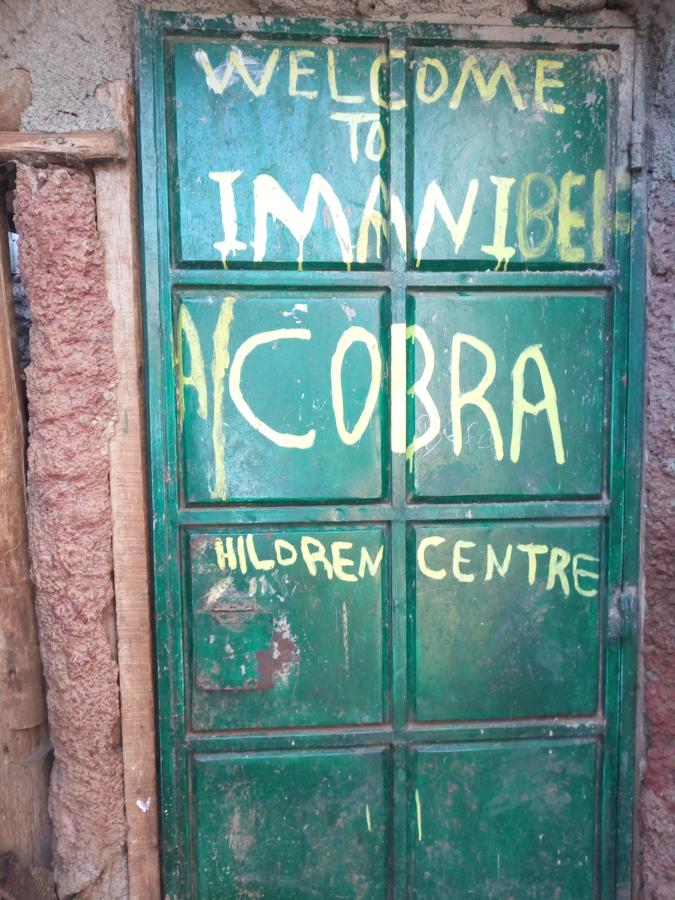 WELCOME
TO
IMANI BEH
A/COBRA
HILDREN CENTRE